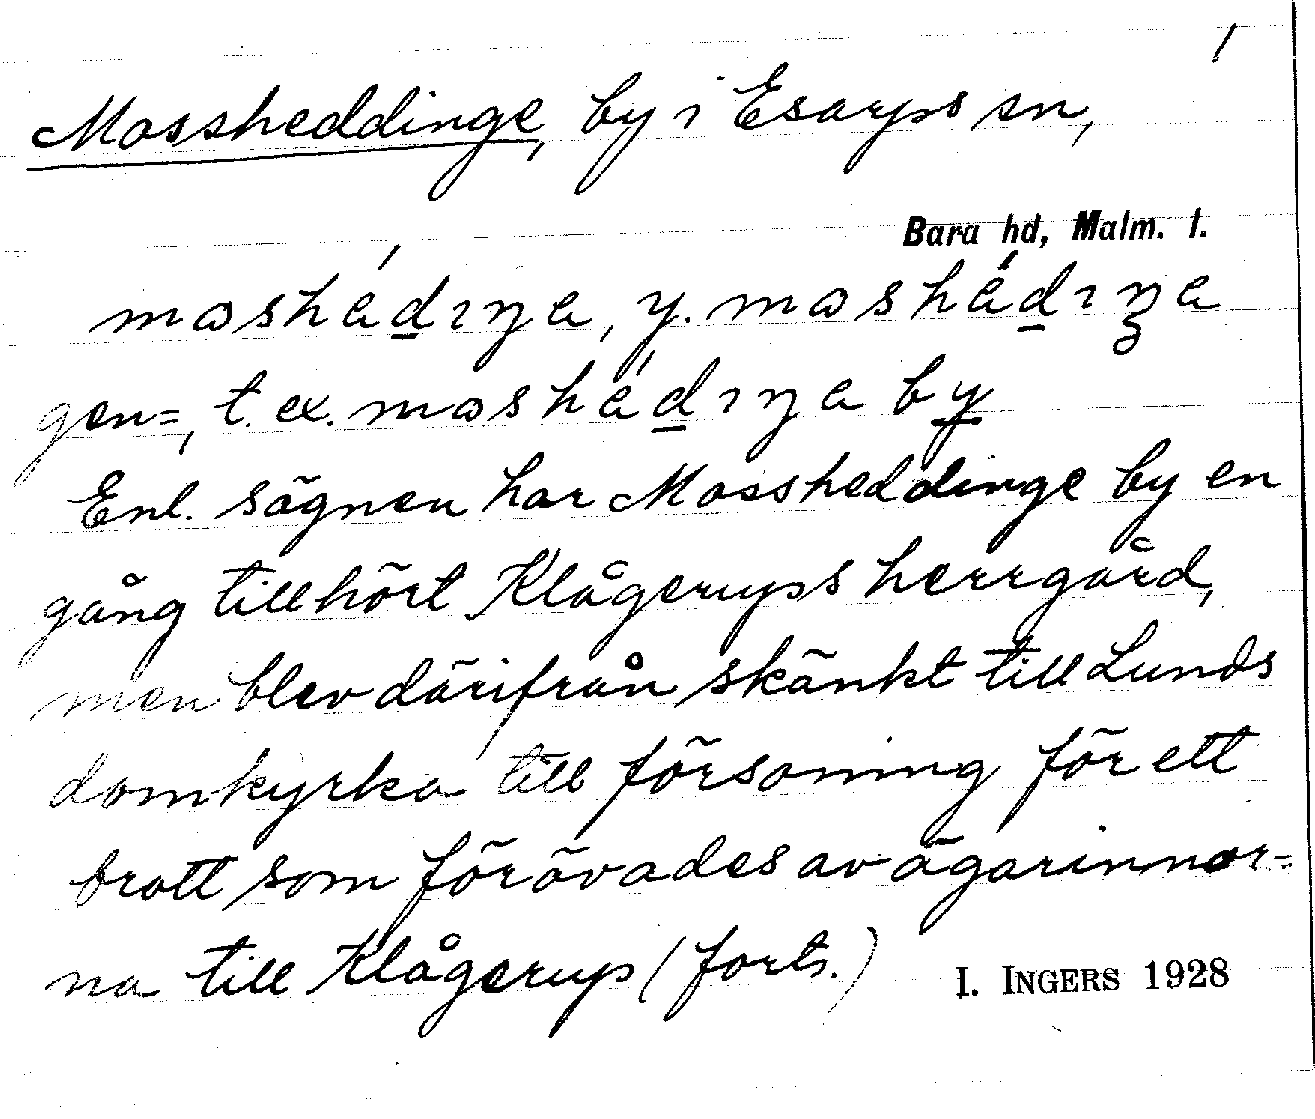 1
Mossheddinge, by i Esarps sn,
Bara hd, Malm. l.
mɷshédıŋa, y. mɷshédıŋa
gen=, t. ex. mɷshédıŋa by
Enl. sägnen har Mossheddinge by en
gång tillhört Klågerups herrgård,
men blev därifrån skänkt till Lunds
domkyrka till försoning för ett
brott som förövades av ägarinnor=
na till Klågerup (forts.)
I. INGERS 1928